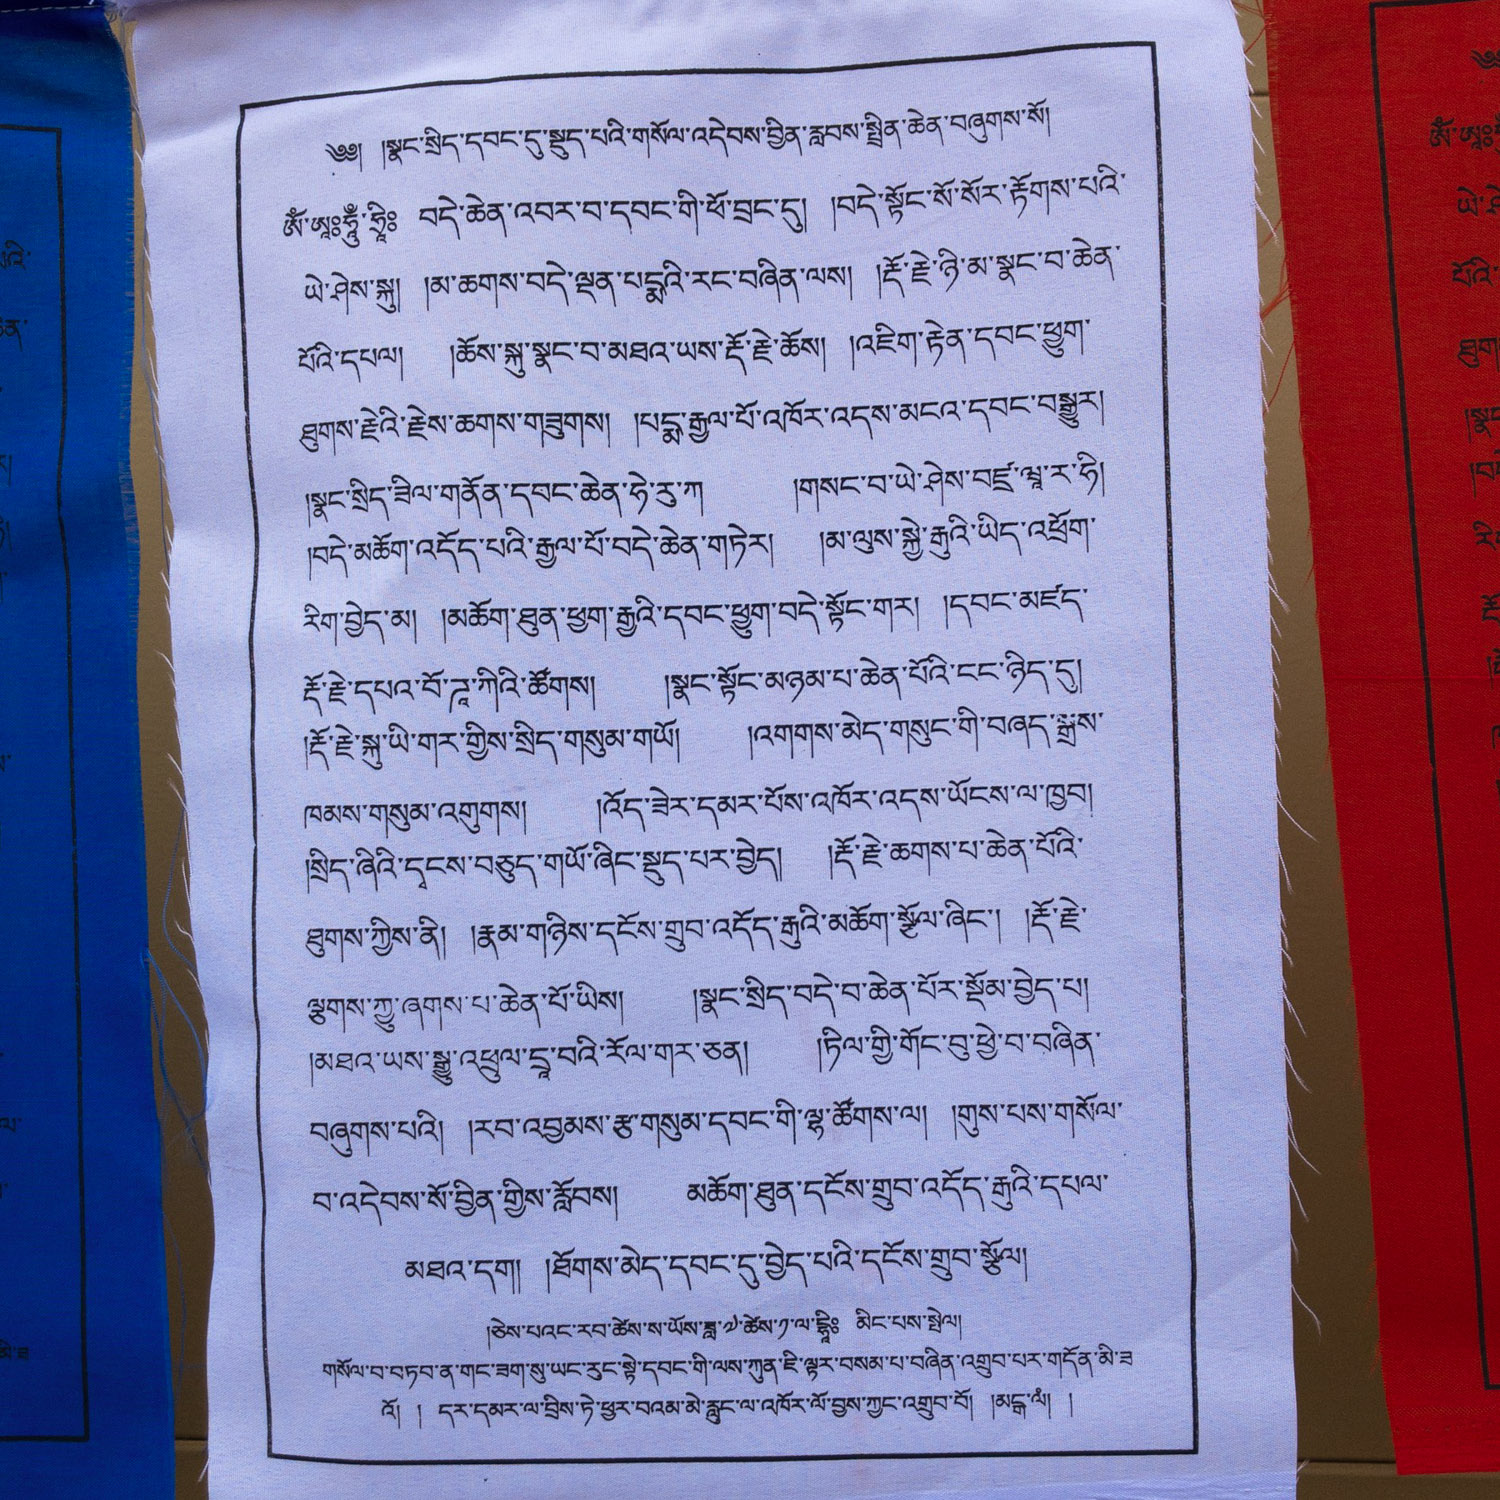 ༄༅། །སྣང་སྲིད་དབང་དུ་སྡུད་པའི་གསོལ་འདེབས་བྱིན་རླབས་སྤྲིན་ཆེན་བཞུགས་སོ།
ཨོཾ་ཨཱཿཧཱུྃ་ཧྲཱིཿ བདེ་ཆེན་འབར་བ་དབང་གི་ཕོ་བྲང་དུ། །བདེ་སྟོང་སོ་སོར་རྟོགས་པའི་
ཡེ་ཤེས་སྐུ། །མ་ཆགས་བདེ་ལྡན་པདྨའི་རང་བཞིན་ལས། །རྡོ་རྗེ་ཉི་མ་སྣང་བ་ཆེན་
པོའི་དཔལ། །ཆོས་སྐུ་སྣང་བ་མཐའ་ཡས་རྡོ་རྗེ་ཆོས། །འཇིག་རྟེན་དབང་ཕྱུག་
ཐུགས་རྗེའི་རྗེས་ཆགས་གཟུགས། །པདྨ་རྒྱལ་པོ་འཁོར་འདས་མངའ་དབང་བསྒྱུར།
།སྣང་སྲིད་ཟིལ་གནོན་དབང་ཆེན་ཧེ་རུ་ཀ །གསང་བ་ཡེ་ཤེས་བཛྲ་ཝཱ་ར་ཧི།
།བདེ་མཆོག་འདོད་པའི་རྒྱལ་པོ་བདེ་ཆེན་གཏེར། །མ་ལུས་སྐྱེ་རྒུའི་ཡིད་འཕྲོག་
རིག་བྱེད་མ། །མཆོག་ཐུན་ཕྱག་རྒྱའི་དབང་ཕྱུག་བདེ་སྟོང་གར། །དབང་མཛད་
རྡོ་རྗེ་དཔའ་བོ་ཌཱ་ཀིའི་ཚོགས། །སྣང་སྟོང་མཉམ་པ་ཆེན་པོའི་ངང་ཉིད་དུ།
།རྡོ་རྗེ་སྐུ་ཡི་གར་གྱིས་སྲིད་གསུམ་གཡོ། །འགགས་མེད་གསུང་གི་བཞད་སྒྲས་
ཁམས་གསུམ་འགུགས། །འོད་ཟེར་དམར་པོས་འཁོར་འདས་ཡོངས་ལ་ཁྱབ།
།སྲིད་ཞིའི་དྭངས་བཅུད་གཡོ་ཞིང་སྡུད་པར་བྱེད། །རྡོ་རྗེ་ཆགས་པ་ཆེན་པོའི་
ཐུགས་ཀྱིས་ནི། །རྣམ་གཉིས་དངོས་གྲུབ་འདོད་རྒུའི་མཆོག་སྩོལ་ཞིང་། །རྡོ་རྗེ་
ལྕགས་ཀྱུ་ཞགས་པ་ཆེན་པོ་ཡིས། །སྣང་སྲིད་བདེ་བ་ཆེན་པོར་སྡོམ་བྱེད་པ།
།མཐའ་ཡས་སྒྱུ་འཕྲུལ་དྲྭ་བའི་རོལ་གར་ཅན། །ཏིལ་གྱི་གོང་བུ་ཕྱེ་བ་བཞིན་
བཞུགས་པའི། །རབ་འབྱམས་རྩ་གསུམ་དབང་གི་ལྷ་ཚོགས་ལ། །གུས་པས་གསོལ་
བ་འདེབས་སོ་བྱིན་གྱིས་རློབས། མཆོག་ཐུན་དངོས་གྲུབ་འདོད་རྒུའི་དཔལ་
མཐའ་དག། །ཐོགས་མེད་དབང་དུ་བྱེད་པའི་དངོས་གྲུབ་སྩོལ།
།ཅེས་པའང་རབ་ཚེས་ས་ཡོས་ཟླ་༧་ཚེས་༡་ལ་ཧྲཱིཿ མིང་པས་སྤེལ།
གསོལ་བ་བཏབ་ན་གང་ཟག་སུ་ཡང་རུང་སྟེ་དབང་གི་ལས་ཀུན་ཇི་ལྟར་བསམ་པ་བཞིན་འགྲུབ་པར་གདོན་མི་ཟ
འོ། ། དར་དམར་ལ་བྲིས་ཏེ་ཕྱར་བའམ་མེ་རླུང་ལ་འཁོར་ལོ་བྱས་ཀྱང་འགྲུབ་བོ། །མངྒ་ལཾ། །